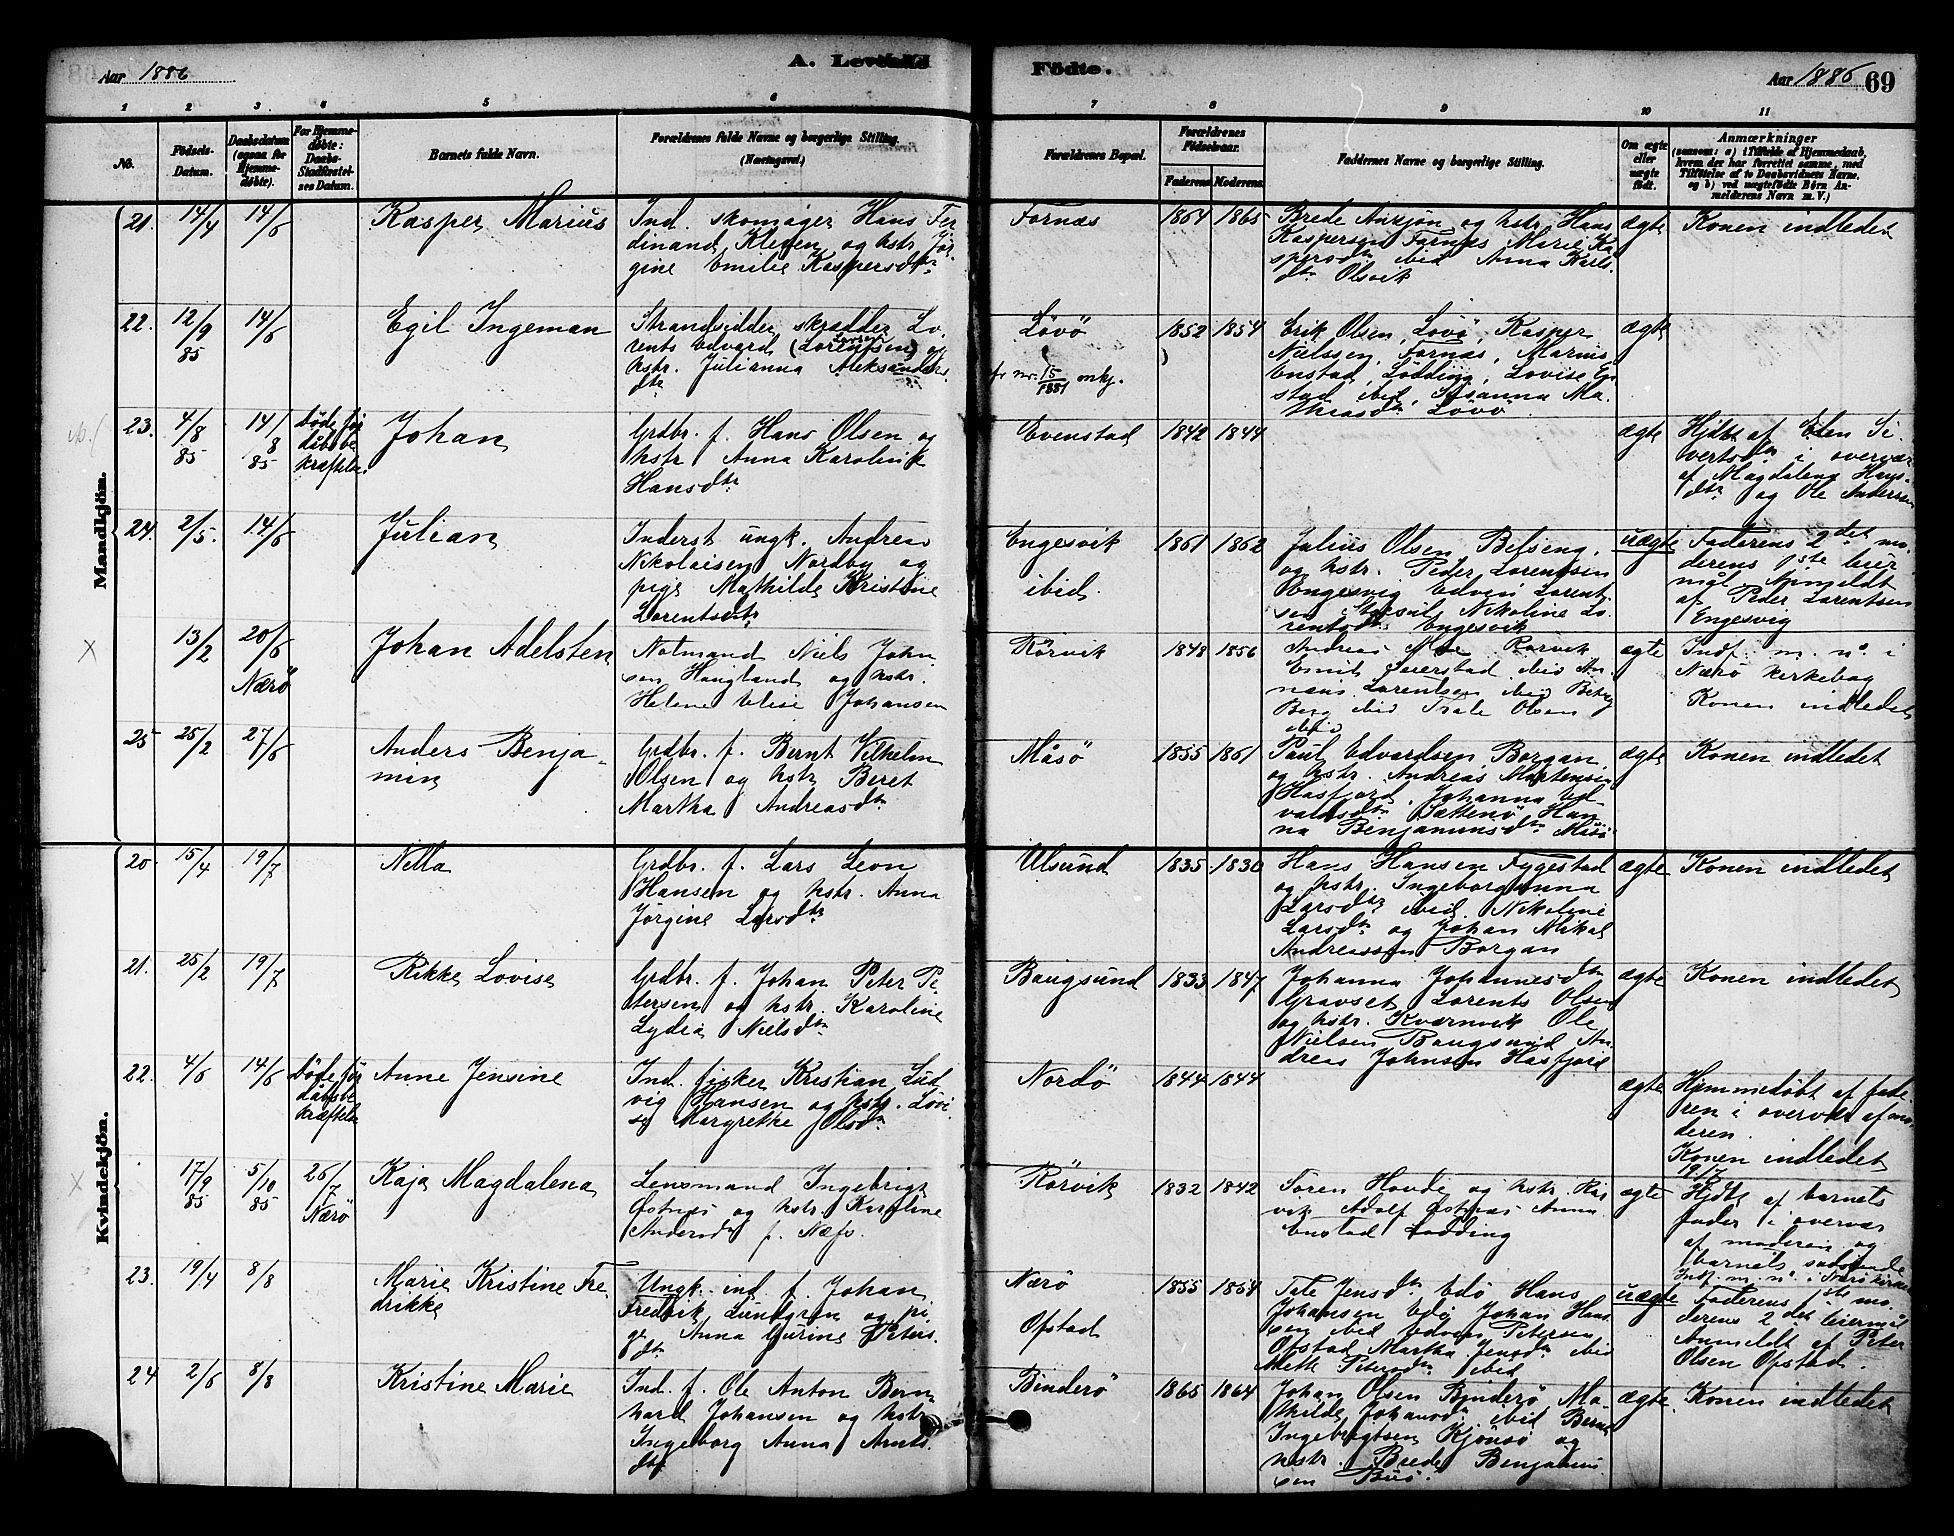 Aar 1886
A. Levende
Fødte.
Aar 1886 69
1 2 3 4 5 6 7 8 9 10 11
No.
Fødsels-
Datum.
Daabsdatum
(ogsaa for
Hjemme-
døbte).
For Hjemme-
døbte:
Daabs-
Stadfæstel-
ses Datum.
Barnets fulde Navn.
Forældrenes fulde Navne og borgerlige Stilling.
(Næringsvei.)
Forældrenes Bopæl.
Forældrenes
Fødselsaar.
Faderens. Moderens.
Faddernes Navne og borgerlige Stilling.
Om ægte
eller
uægte
født.
Anmærkninger
(saasom: a) i Tilfælde af Hjemmedaab,
hvem der har forrettet samme, med
Tilføielse af to Daabsvidners Navne,
og b) ved uægtefødte Børn An-
melderens Navn m. V.)
Mandkjön.
21. 14/4 14/6
Kasper Marius
Ind. skomager Hans Fer
dinand Kleven og hstr. Jör-
gine Emilie Kaspersdtr
Fornæs
1864 1865
Brede Aursjøn og hstr. Hans
Kaspersen Fornæs Marie Ka
spersdtr ibid Anna Karls
dtr Olsvik
ægte
Konen indledet
22. 12/9 85 14/6
Egil Ingeman
Strandsidder, skrædder Lo
rents Edvard (Lorentsen) og
hstr. Julianna Aleksanders
dtr
Lövö
fr nr. 15/1881 omkj.
1852 1854
Erik Olsen, Lövö, Kasper
Nielssen, Fornæs, Marius
Enstad, Lödding, Lovise En
stad ibid, Susanna Ma
thiasdtr Lövö
ægte
23. 4/8 85 14/8 85
döde för
dåbsbe
kræftelse
Johan
Grdbr. f. Hans Olsen og
hstr Anna Karolink
Hansdtr
Evenstad
1842 1844
ægte
Hjdbt af Elen Si
vertsdtr i overvær
af Magdalena Hans
dtr og Ole Andersen
24. 2/5. 14/6
Julian
Inderst ungk. Andreas
Nikolaisen Nordby og
pige Mathilde Kristine
Lorentsdtr
Engesvik
ibid.
1861 1862
Julius Olsen Belseng,
og hstr. Peder Lorentsen
Engesvig Edvin Lorent
sen Nikoline Lo
rentsdtr Engesvik
uægte
Faderens 2det mo
derens 1ste leier
mål. Anmeldt
af Peder Lorentsen
Engesvig
X
13/2 20/6
Nærö
Johan Adelsten
Notmand Niels John
sen Haugland og hstr.
Helene Elise Johansen
Rörvik
1848 1856
Andreas Moe Rörvik
Emil ibid An
Lorentsen ibid Betzy
Berg ibid Olsen
ibid
ægte
Indf. m. no. i
Nærö kirkebog
Konen indledet
25 25/2 27/6
Anders Benja-
min
Grdbr. f. Bernt Vilhelm
Olsen og hstr Beret
Martha Andreasdtr
Måsö
1855 1861
Paul Edvardsen Borgan
og hstr. Andreas Martensen
Hasfjord, Johanna Ed
vardsdtr Sættenø Han
na Benjaminsdtr Måsö
ægte
Konen indledet
Kvindekjön.
20 15/4 19/7
Nella
Grdbr. f. Lars Leon
Hansen og hstr. Anna
Jörgine Larsdtr
Ulsund
1835 1830
Hans Hansen Fyggestad
og hstr. Ingeborganna
Larsdtr ibid. Nikoline
Larsdtr og Johan Mikal
Andreassen Borgan
ægte
Konen indledet
21. 25/2 19/7
Rikke Lovise
Grdbr. f. Johan Peter Pe
tersen og hstr. Karoline
Lydia Nielsdtr
Baugsund
1833 1847
Johanna Johannesdtr
Gravset Lorents Olsen
og hstr. Kværnvik Ole
Nielsen Baugsund An
dreas Johnsen Hasfjord
ægte
Konen indledet
22. 4/6 14/6
döde för
dåbsbe
kræftelse
Anne Jensine
Ind. fisker Kristian Lud
vig Hansen og hstr. Lovi
se Margrethe Olsdtr
Nordö
1844 1844
ægte
Hjemmedöbt af fade
ren i overvær af mo
deren.
Konen indledet
19/7
X
17/9 85 5/10 85 26/7
Nærö
Kaja Magdalena
Lensmand Ingebrigt
Östnes og hstr. Karoline
Andersd f. Næfs.
Rörvik
1832 1842
Sören Hovde og hstr. Rör
vik Adolf Östnes Anna
Enstad Lödding
ægte
Hjdbt af barnets
fader i overvær
af moderen og
barnets
Indf. m. no. i Nærö kirkeb
23. 19/4 8/8
Marie Kristine Fre
drikke
Ungk. ind f. Johan
Fredrik Lundgren og pi-
ge Anna Gurine Peters.
dtr
Nærö
Ofstad
1855 1854
Tale Jensdtr Edö Hans
Johansen Edö Johan Han
sen ibid Edvin Petersen
Ofstad Martha Jensdtr ibid
Mette Petersdtr ibid
uægte
Faderens 1ste mo
derens 2det leiermål
Anmeldt af Peter
Olsen Ofstad.
24 2/6 8/8
Kristine Marie
Ind. f. Ole Anton Bern
hard Johansen og hstr
Ingeborg Anna Arnts
dtr
Binderö
1865 1864
Johan Olsen Binderö Ma-
thilde Johansd. ibid Bernt
Ingebrigtsen Kjönsö og
hstr. Brede Benjamin
sen Buö.
ægte.
Konen indledet